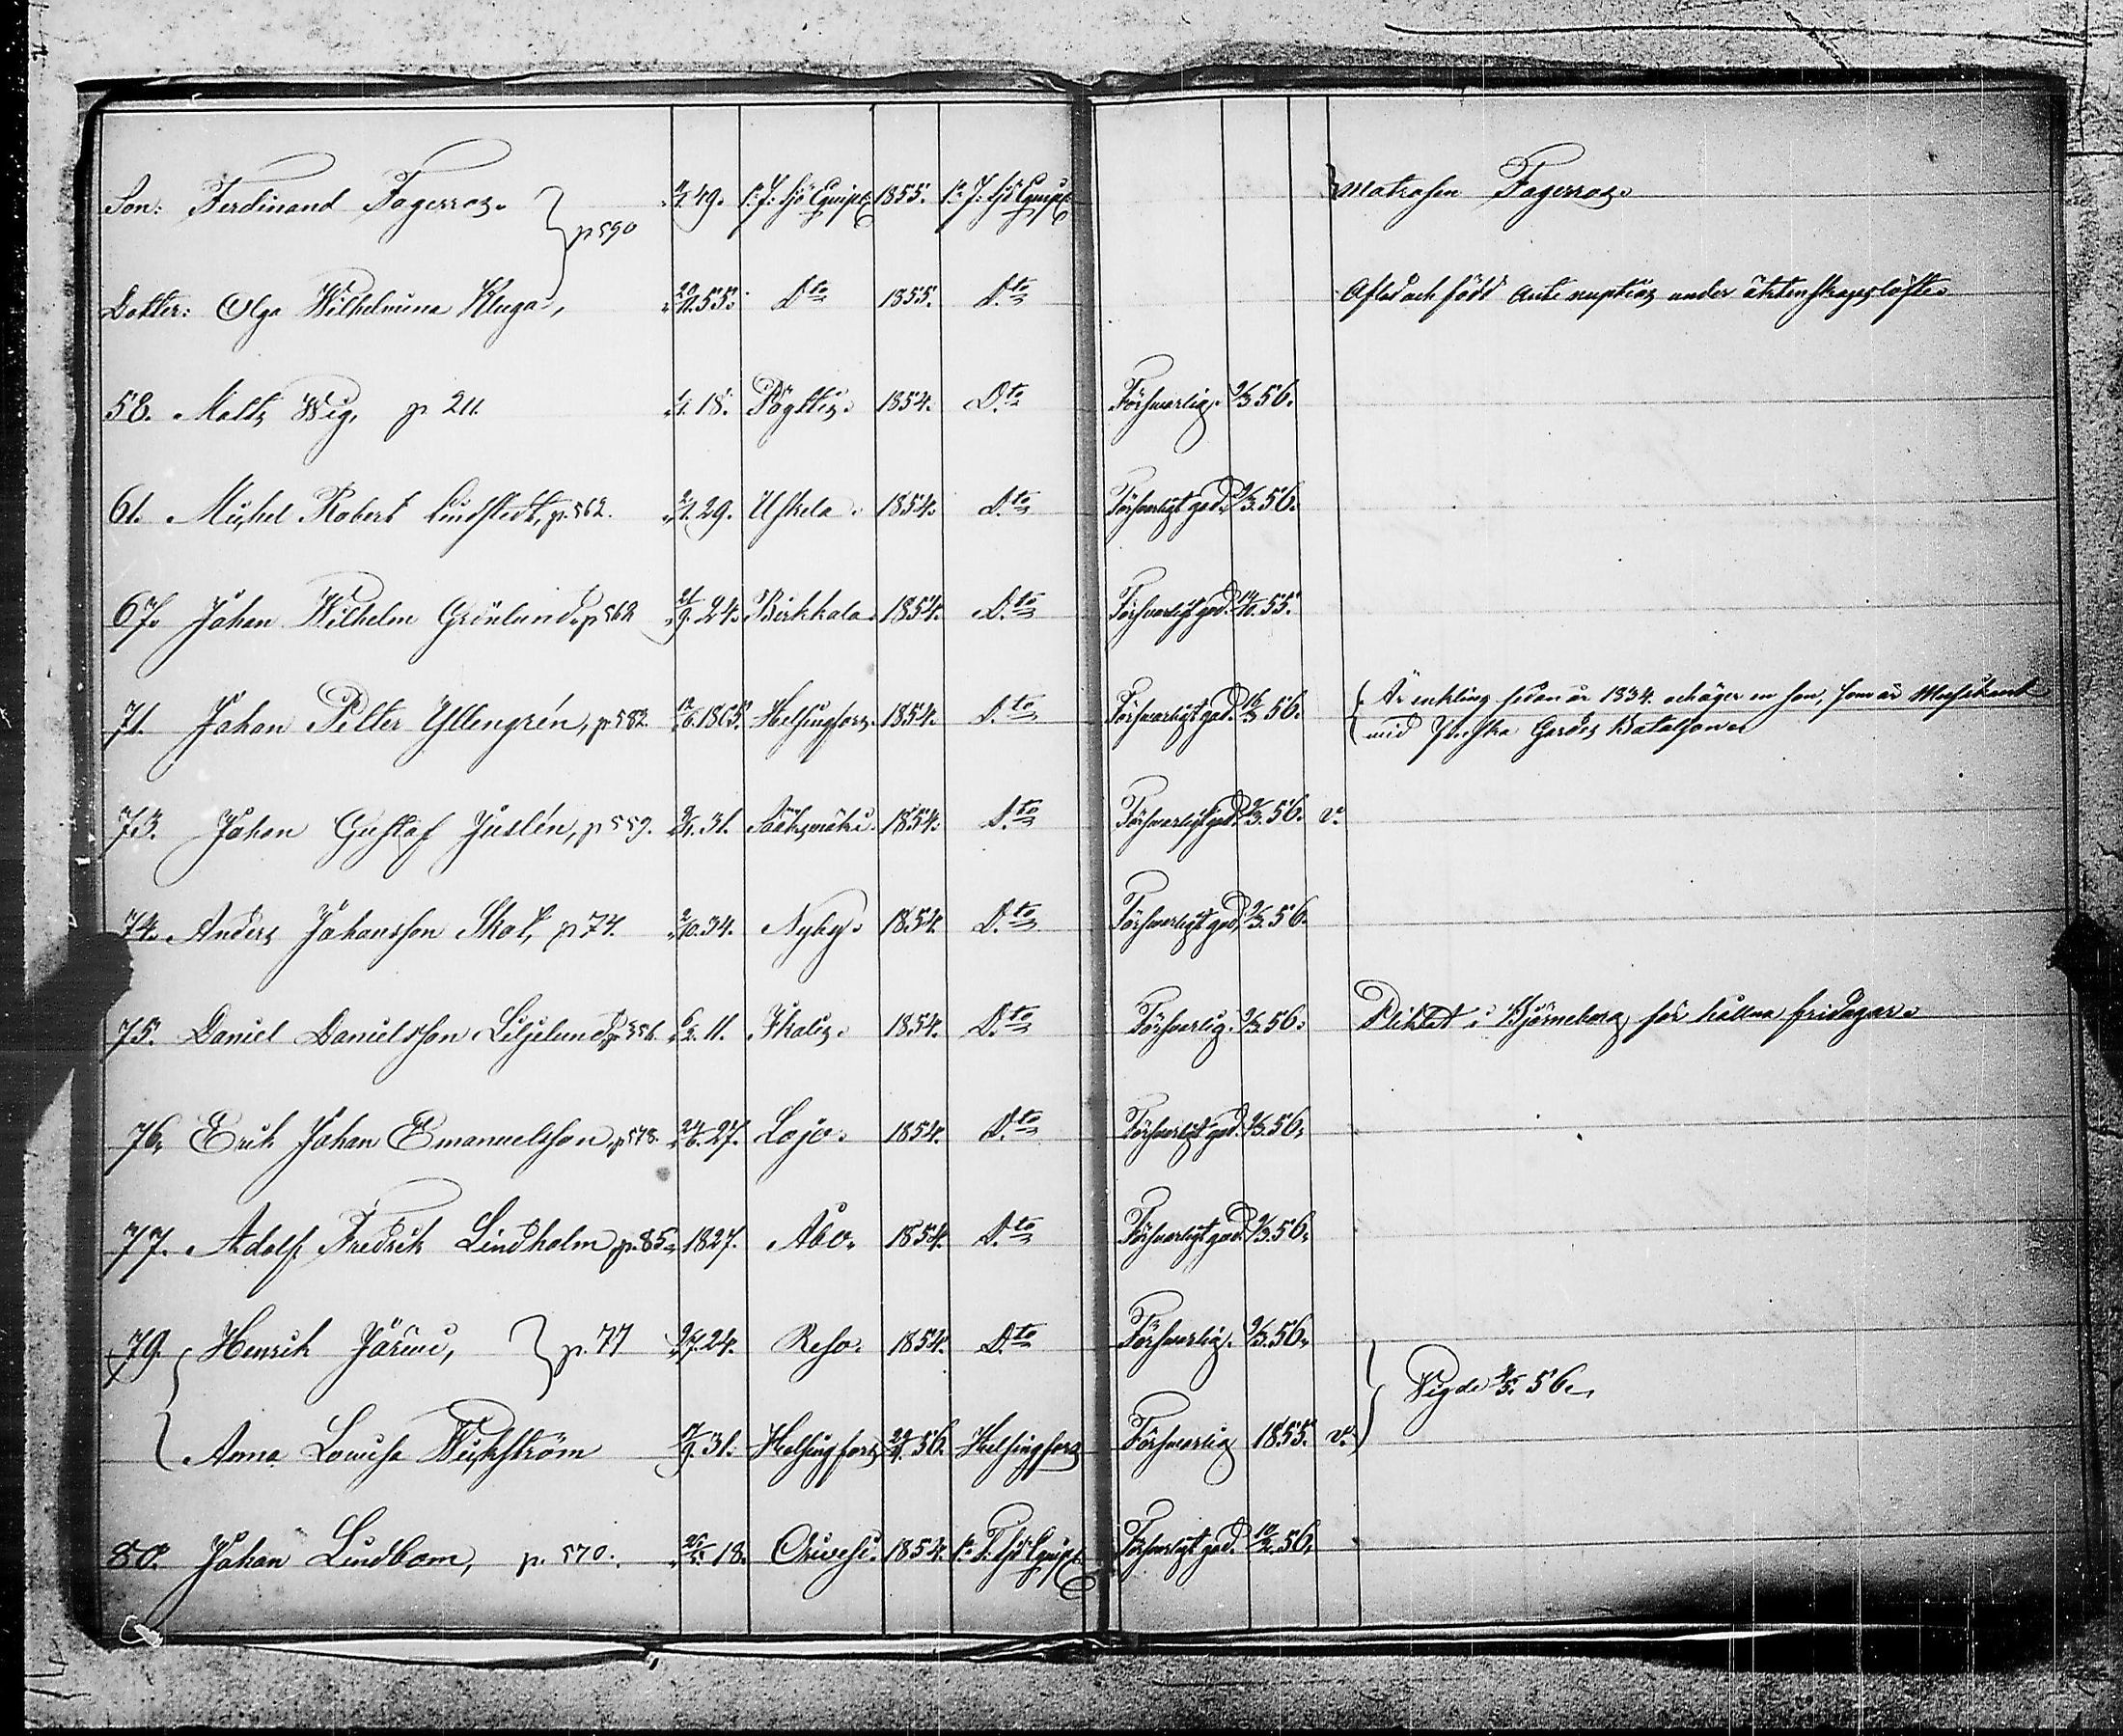 Son: Ferdinand Fagerros. } p 590 49. 1:a F: Sjö Equipt: 1855. 1:a F: Sjö Equipt: } Matrosen Fagerros.
Dotter: Olga Wilhelmina Kluga, 55. Dto 1855. Dto Aflad och född ante nuptias under äktenskapslöfte.
58. Matts Wig, p 211. 18. Pöyttis. 1854. Dto Försvarlig. 2/3. 56.
61. Michel Robert Lindstedt, p. 562. 29. Uskela. 1854. Dto Försvarligt god. 2/3. 56.
67. Johan Wilhelm Grönlund. p 562 21/9. 24. Birkkala. 1854. Dto Försvarligt god. 14/10. 55.
71. Johan Petter Yllengrén, p 582 12/6. 1805. Helsingfors. 1854. Dto Försvarligt god. 56. { Är enkling sedan år 1834. och äger en son, som är Musikant
vid Finska Gardes Bataljonen
73. Johan Gustaf Juslén, p 559. 31. Sääksmäki. 1854. Dto Försvarligt god. 2/3. 56. v.
74. Anders Johansson Skot, p 74. 2/10. 34. Nyby. 1854. Dto Försvarligt god. 2/3. 56.
75. Daniel Danielsson Liljelund, p 556. 6/2. 11. Ikalis. 1854. Dto Försvarlig. 2/3. 56. Pliktat i Björneborg för hållna fridagar.
76. Erik Johan Emanuelsson, p 578. 24/6. 27. Lojo. 1854. Dto Försvarligt god. 2/3. 56.
77. Adolf Fredrik Lindholm, p. 85. 1827. Åbo. 1854. Dto Försvarligt god. 2/3. 56.
79. { Henrik Järvi, } p. 77 24. Reso. 1854. Dto Försvarlig. 2/3. 56.
} Vigde 56.
Anna Lovisa Weckström 9. 31. Helsingfors 56. Helsingfors Försvarlig 1855. v.
80. Johan Lindbom, p. 570. 18. Orivesi. 1854. 1:a F: Sjö Equipt: Försvarligt god. 10/2. 56.